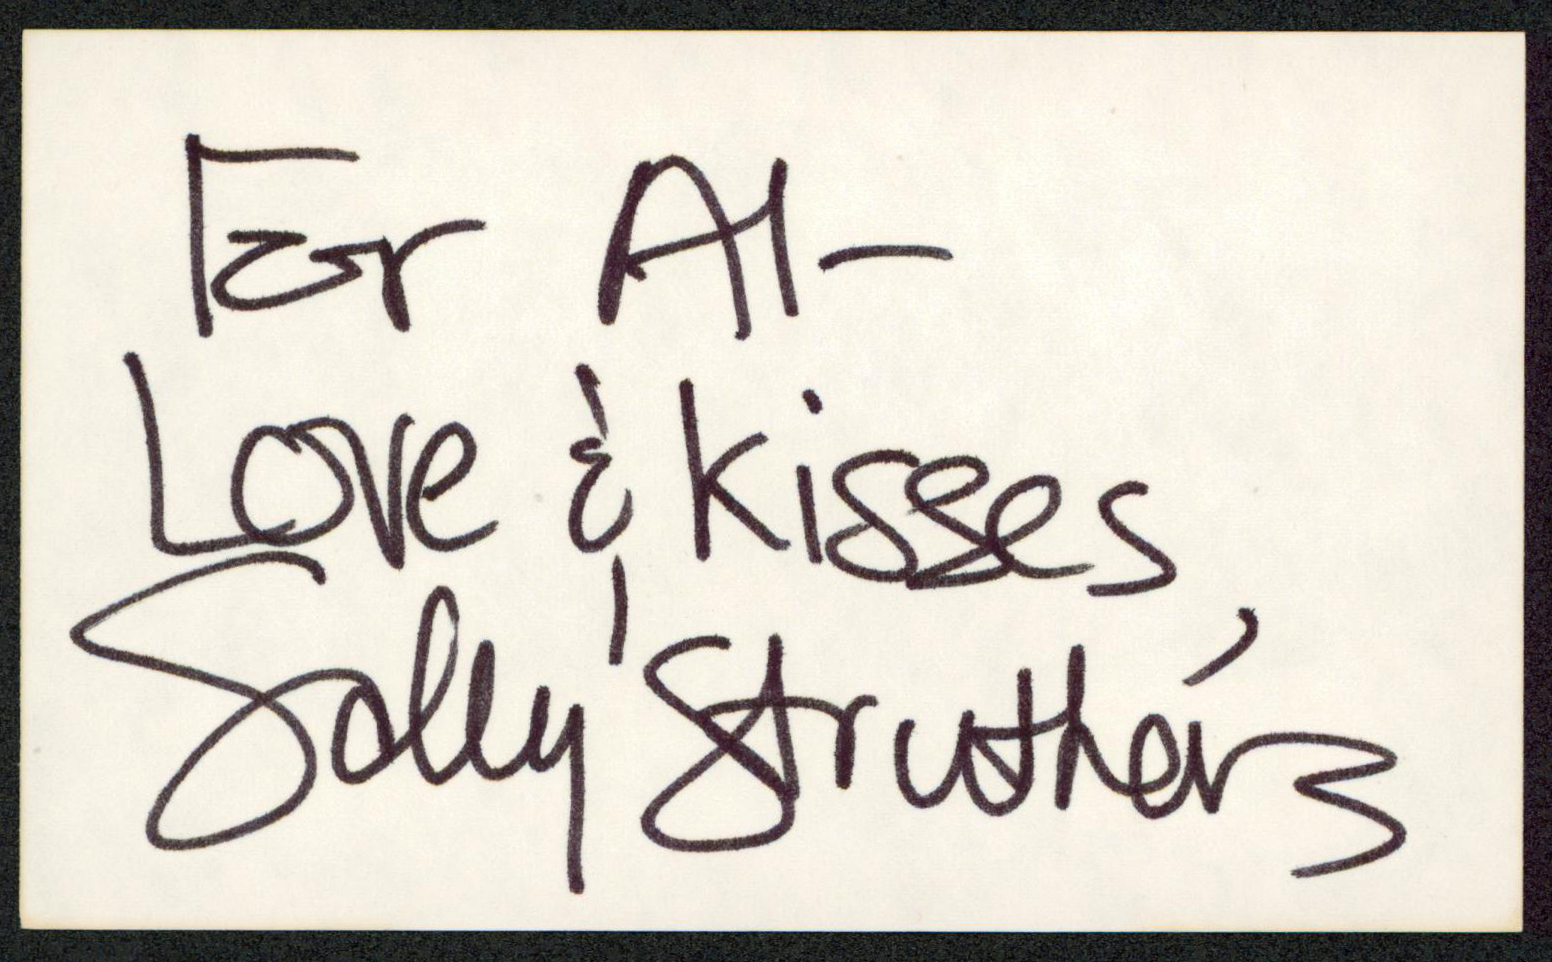 For Al-
Love & Kisses,
Sally Struthers